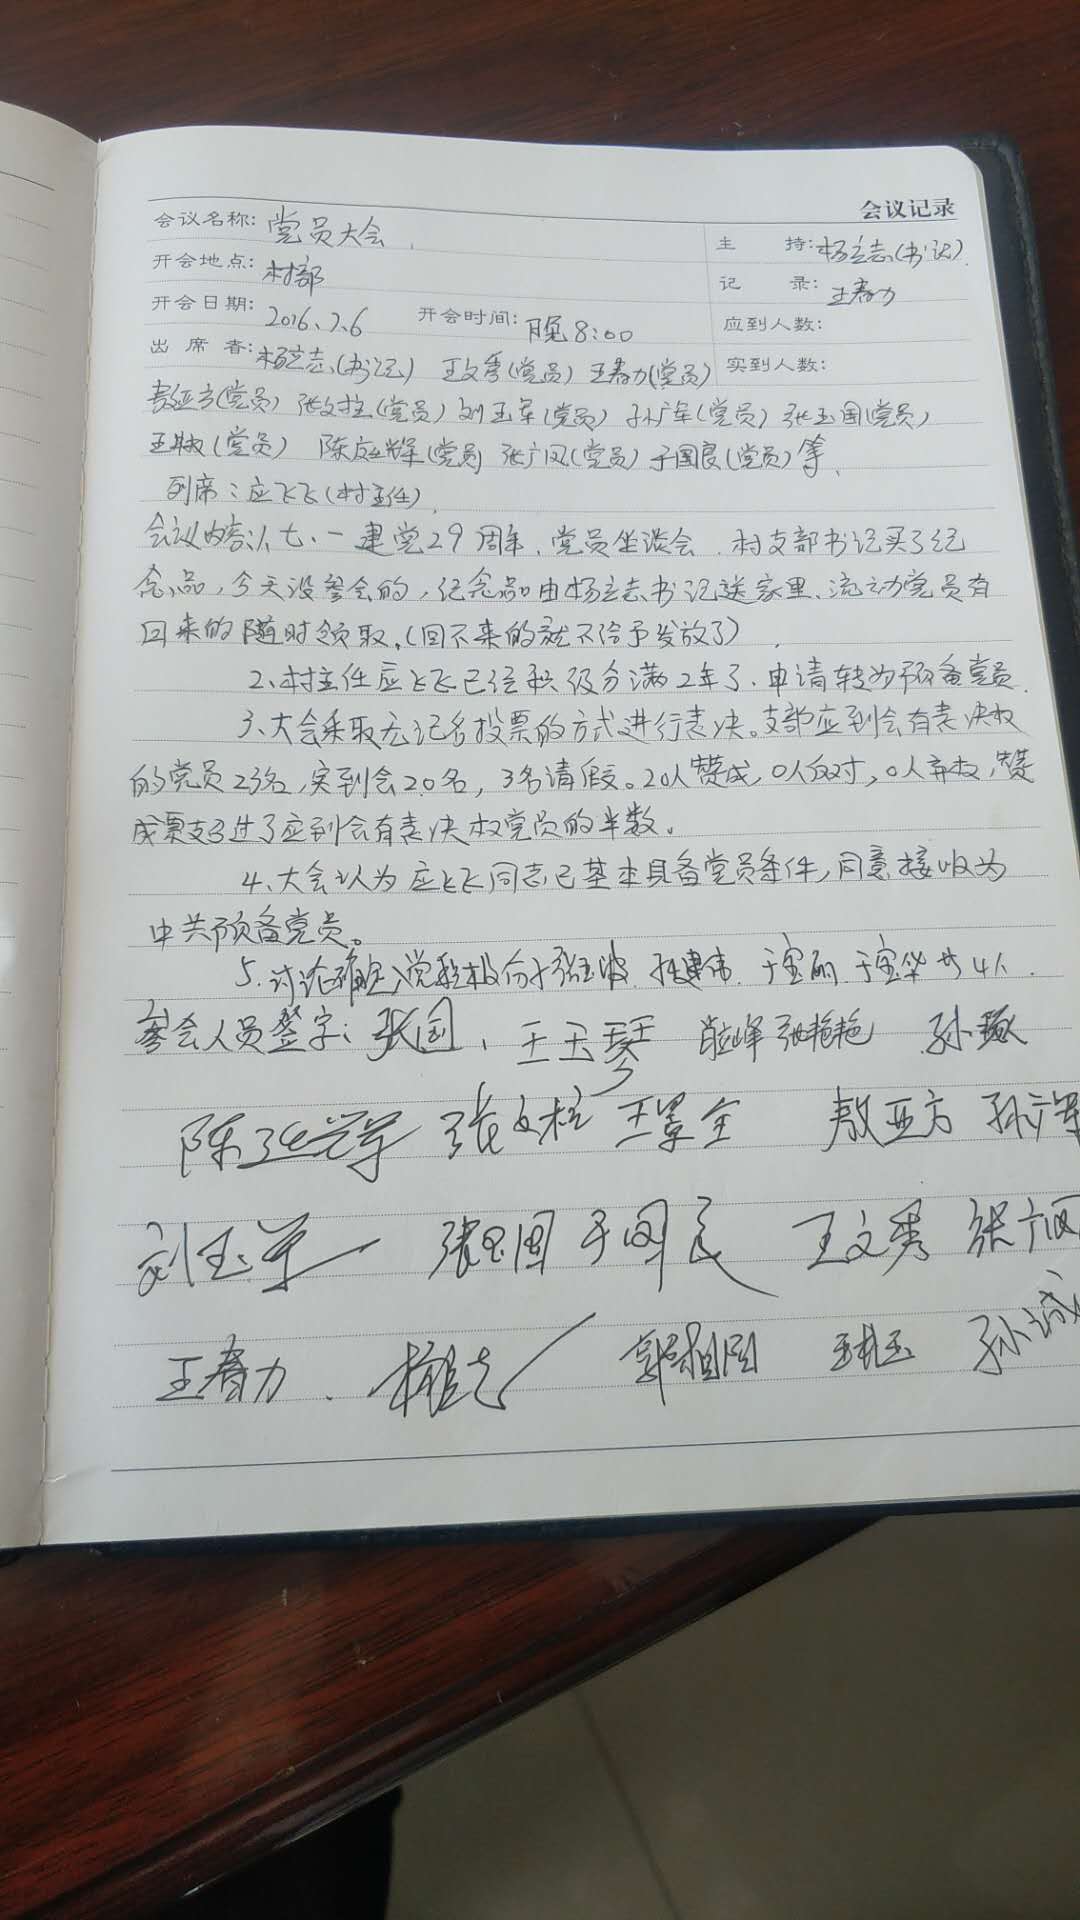 会议记录
会议名称: 党员大会
主 持: 杨立志(书记)
开会地点: 村部
记 录: 王春力
开会日期: 2016.7.6 开会时间: 晚8:00
应到人数:
出 席 者: 杨立志(书记) 王文秀(党员) 王春力(党员)
实到人数:
敖亚方(党员) 张文柱(党员) 刘玉军(党员) 孙广军(党员) 张玉国(党员)
(党员) 陈延辉(党员) 张广凤(党员) 于国良(党员)等
列席:应飞飞(村主任)
会议内容:1、七、一建党29周年、党员坐谈会、村支部书记买了纪
念品,今天没参会的,纪念品由杨立志书记送家里、流动党员有
回来的随时领取,(回不来的就不给予发放了)
2、村主任应飞飞已经积级分满2年了、申请转为预备党员
3、大会采取无记名投票的方式进行表决。支部应到会有表决权
的党员23名,实到会20名,3名请假。20人赞成,0人反对,0人弃权,赞
成票超过了应到会有表决权党员的半数。
4、大会认为应飞飞同志已基本具备党员条件,同意接收为
中共预备党员。
5、讨论确定入党积极份子张玉波、 于宝丽、于宝华共4人
参会人员签字: 王玉琴 张艳艳
张文柱 敖亚方 孙广军
刘玉军 张玉国 于国良 王文秀 张广凤
王春力 杨立志 郭相国 孙诚